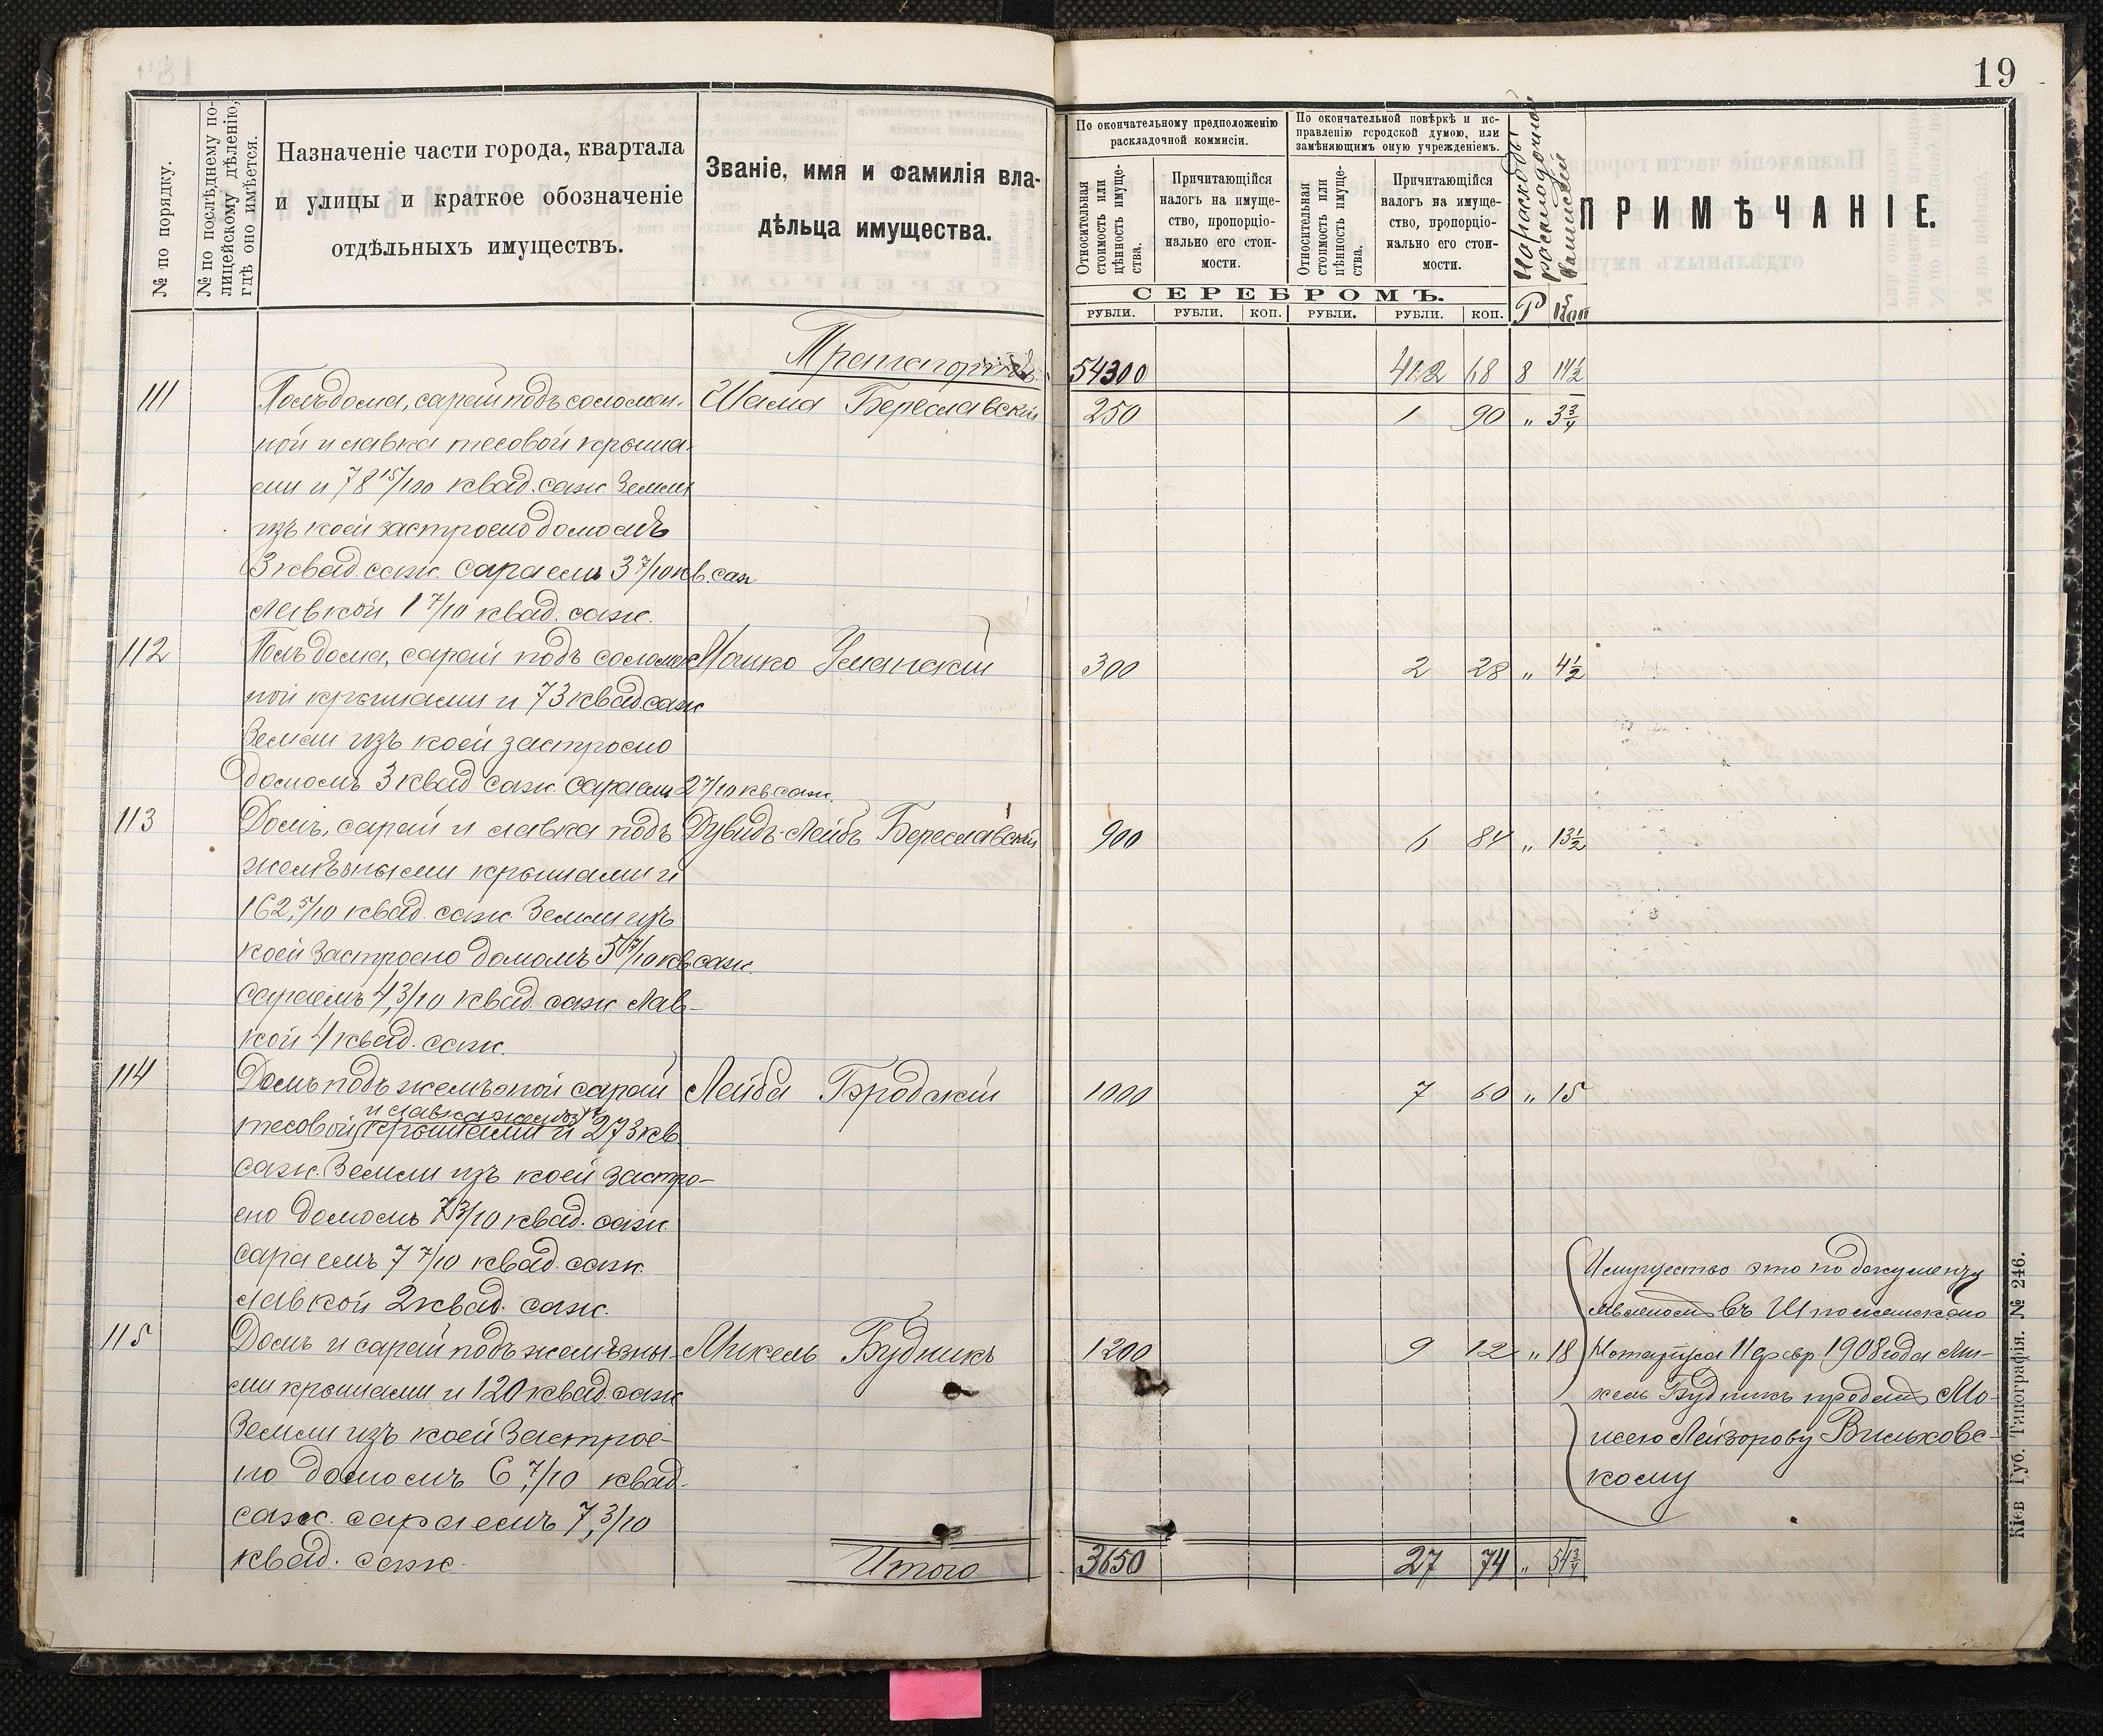 19
№ по порядку.
№ по послѣднему по-
лицейскому дѣленію,
гдѣ оно имѣется.
Назначеніе части города, квартала
и улицы и краткое обозначеніе
отдѣльныхъ имуществъ.
Званіе, имя и фамилія вла-
дѣльца имущества.
По окончательному предположенію
раскладочной коммисіи.
По окончательной повѣркѣ и ис-
правленію городской думою, или
замѣняющимъ оную учрежденіемъ.
Относительная
стоимость или
цѣнность имуще-
ства.
Причитающійся
налогъ на имуще-
ство, пропорціо-
нально его стои-
мости.
Относительная
стоимость или
цѣнность имуще-
ства.
Причитающійся
налогъ на имуще-
ство, пропорціо-
нально его стои-
мости.
На расходы
раскладочной
Коммисіи
ПРИМѢЧАНІЕ.
СЕРЕБРОМЪ.
РУБЛИ. РУБЛИ. КОП. РУБЛИ. РУБЛИ. КОП. Р Коп
54300 412 68 8 14½
111 Полъ дома, сарай подъ соломен- Шама Береславскій 250 1 90 „ 3¾
ной и лавка тесовой крыша-
ми и 78 15/100 квад. саж. Земли
изъ коей застроено домомъ
3 квад. саж. сараемъ 3 7/10 кв. саж
лавкой 1 7/10 квад. саж.
112 Полъ дома, сарай подъ соломен Мошко Уманскій 300 2 28 „ 4½
ной крышами и 73 квад. саж
Земли изъ коей застроено
домомъ 3 квад саж. сараемъ 2 7/10 кв саж.
113 Домъ, сарай и лавка подъ Дувидъ-Лейбъ Береславскій 900 6 84 „ 13½
желѣзными крышами и
162,5/10 квад. саж. Земли изъ
коей Застроено домомъ 5 7/10 кв саж.
Сараемъ 4,3/10 квад. саж Лав-
кой 4 квад. саж.
114 Домъ подъ желѣзной сарай Лейба Бродскій 1000 7 60 „ 15
и лавка желѣз
тесовой крышами и 273 кв
саж. Земли изъ коей застро-
ено домомъ 7 3/10 квад. саж.
сараемъ 7 7/10 квад. саж
лавкой 2 квад. саж.
115 Домъ и сарай подъ желѣзны- Микель Будникъ 1200 9 12 „ 18
ми крышами и 120 квад. саж
Земли изъ коей Застрое-
но домомъ 6,7/10 квад-
саж. сараемъ 7,3/10
квад. саж.
Имущество это по документу
въ Шполянскаго
Нотаріуса 11 февр 1908 года Ми-
кель Будникъ продалъ Мо-
исею Лейзорову Вильковс-
кому
Итого 3650 27 74 „ 54¾
Кіев Губ. Типографія. № 246.